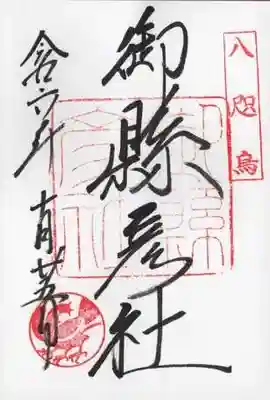 八咫烏
御縣彦社
令和六年十月廿五日